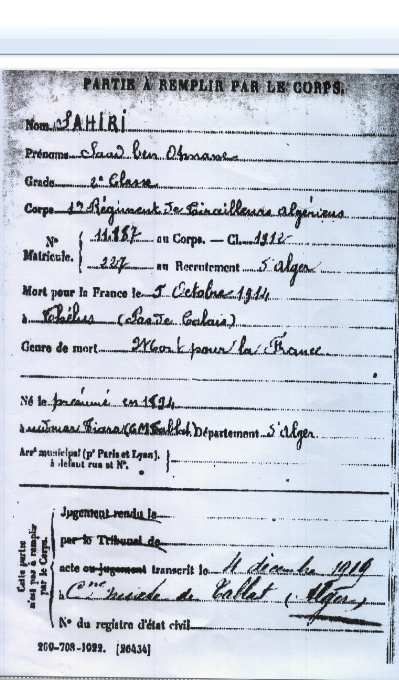 PARTIE À REMPLIR PAR LE CORPS.
Nom SAHIRI
Prénoms Saad ben Otmane
Grade 2e Classe
Corps 1er Régiment de Tirailleurs Algériens
N° Matricule. 11.887 au Corps. — Cl. 1912
227 au Recrutement d'Alger
Mort pour la France le 5 Octobre 1914
à Thélus (Pas de Calais)
Genre de mort Mort pour la France
Né le présumé en 1894
à Tiara (C.M. Tablat) Département d'Alger
Arrt municipal (pr Paris et Lyon), à défaut rue et N°.
Cette partie n'est pas à remplir par le Corps.
Jugement rendu le
par le Tribunal de
acte ou jugement transcrit le 4 décembre 1919
à Cne mixte de Tablat (Alger)
N° du registre d'état civil
260-708-1922. [26434]